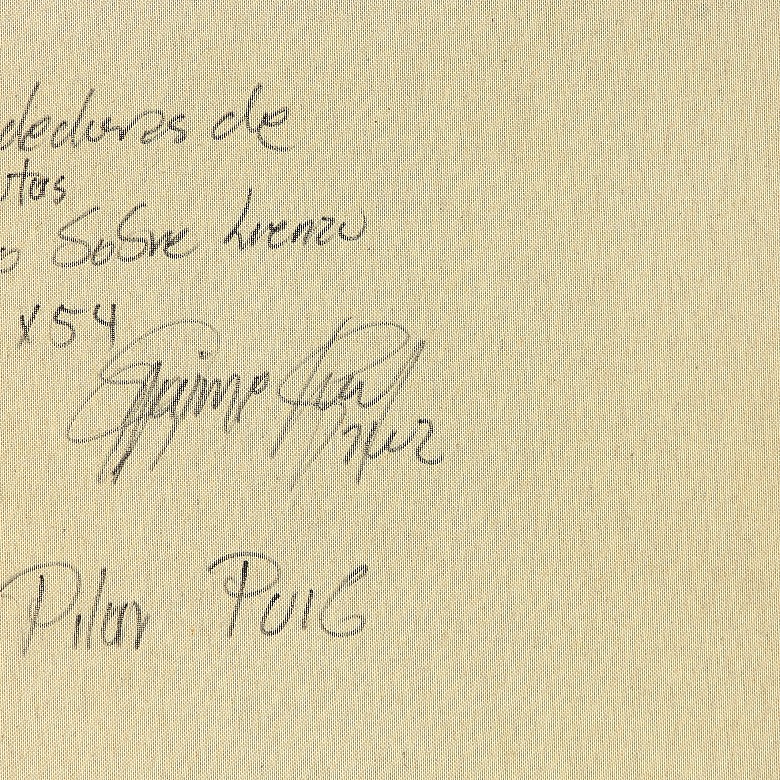 dedoras de
utas
o Sobre Lienzo
x 54
Pilar Puig